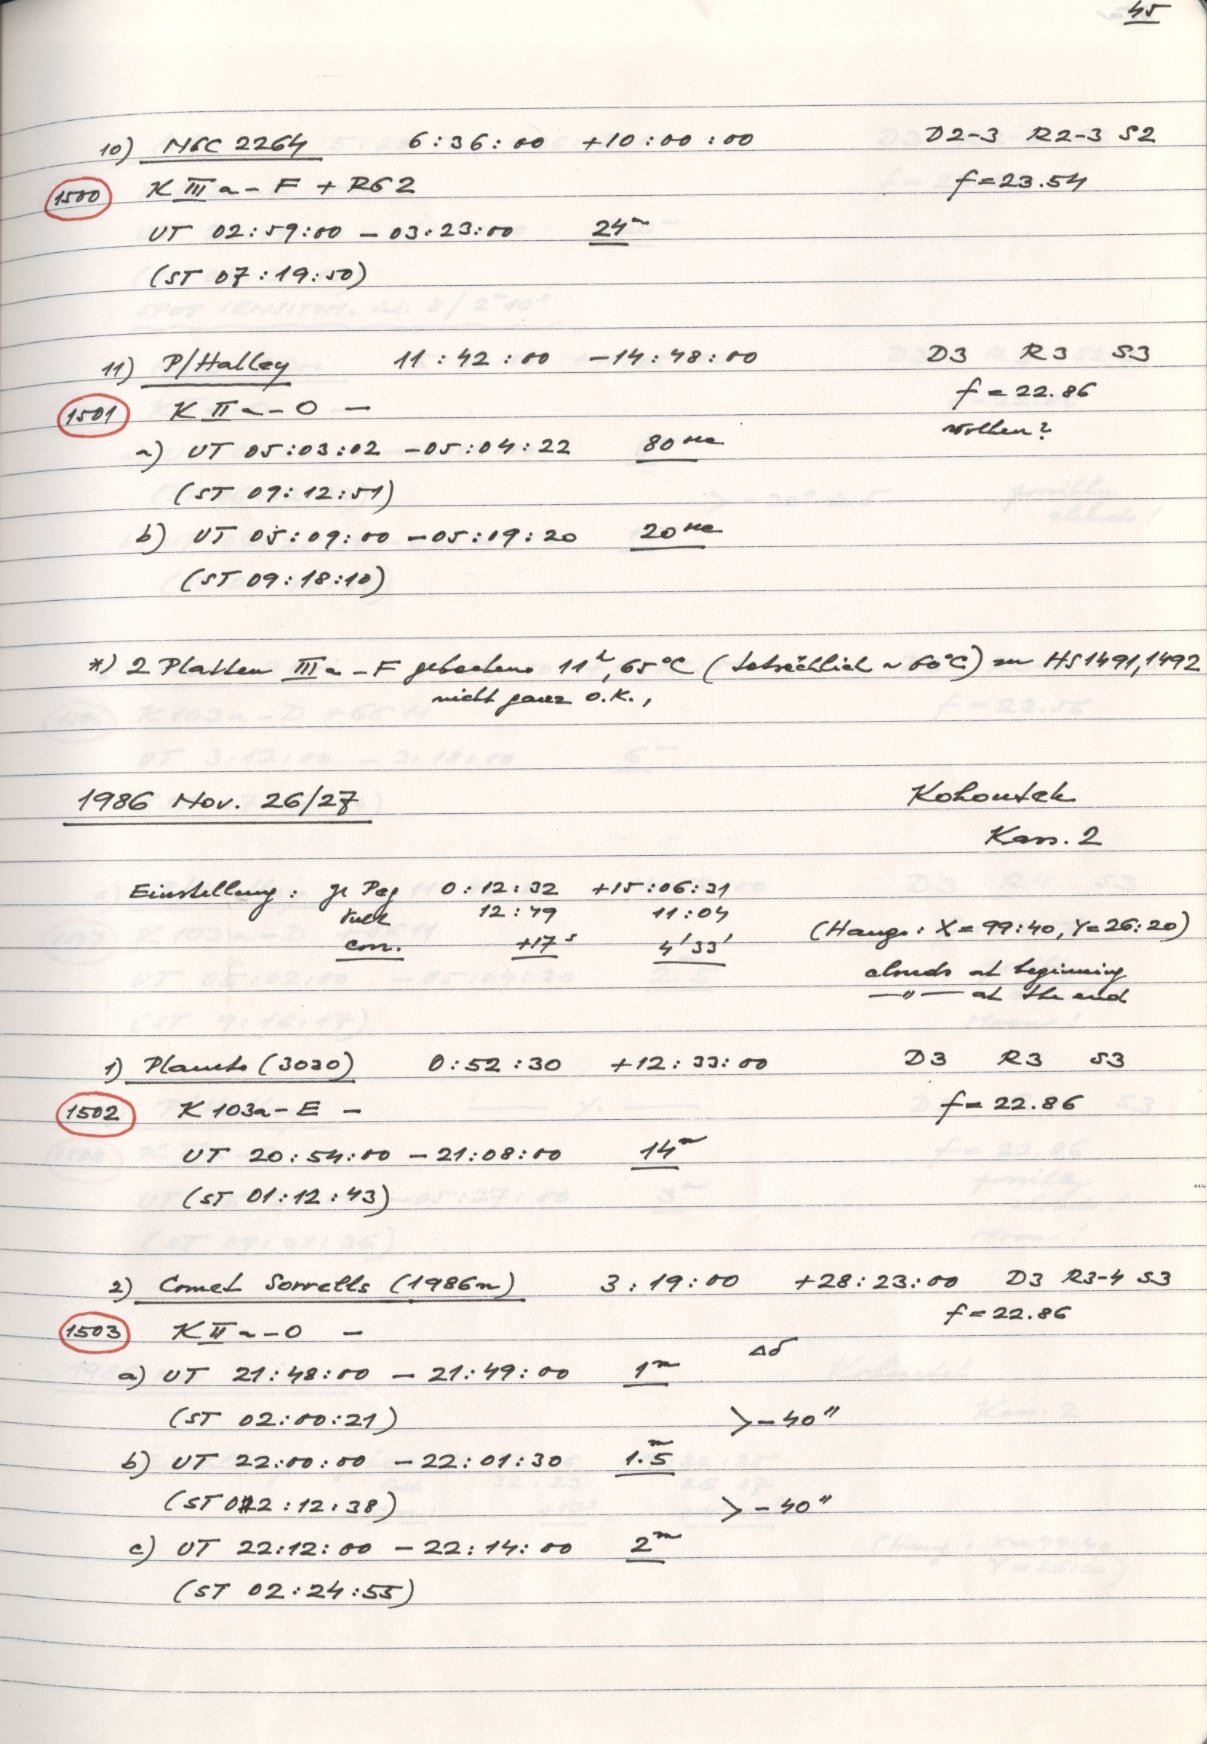 45
10) NGC 2264 6:36:00 +10:00:00 D2-3 R2-3 S2
1500 K IIIa-F + RG2 f=23.54
UT 02:59:00 - 03:23:00 24m
(ST 07:19:50)
11) P/Halley 11:42:00 -14:48:00 D3 R3 S3
1501 K IIa-O - f=22.86
a) UT 05:03:02 -05:04:22 80sec Wolken?
(ST 09:12:51)
b) UT 05:09:00 -05:09:20 20sec
(ST 09:18:10)
*) 2 Platten IIIa-F gebacken 11h, 65°C (tatsächlich ~60°C) zu HS1491,1492
nicht ganz O.K.,
1986 Nov. 26/27 Kohoutek
Kass. 2
Einstellung: γ Peg 0:12:32 +15:06:31
12:49 11:04
corr. +17s 4'33' (Hauge: X=99:40, Y=26:20)
clouds at beginning
—"— at the end
1) Planets (3030) 0:52:30 +12:33:00 D3 R3 S3
1502 K 103a-E - f=22.86
UT 20:54:00 -21:08:00 14m
(ST 01:12:43)
2) Comet Sorrells (1986n) 3:19:00 +28:23:00 D3 R3-4 S3
1503 K IIa-O - f=22.86
Δδ
a) UT 21:48:00 - 21:49:00 1m
(ST 02:00:21) >-40"
b) UT 22:00:00 -22:01:30 1.5m
(ST 02:12:38) >-40"
c) UT 22:12:00 - 22:14:00 2m
(ST 02:24:55)